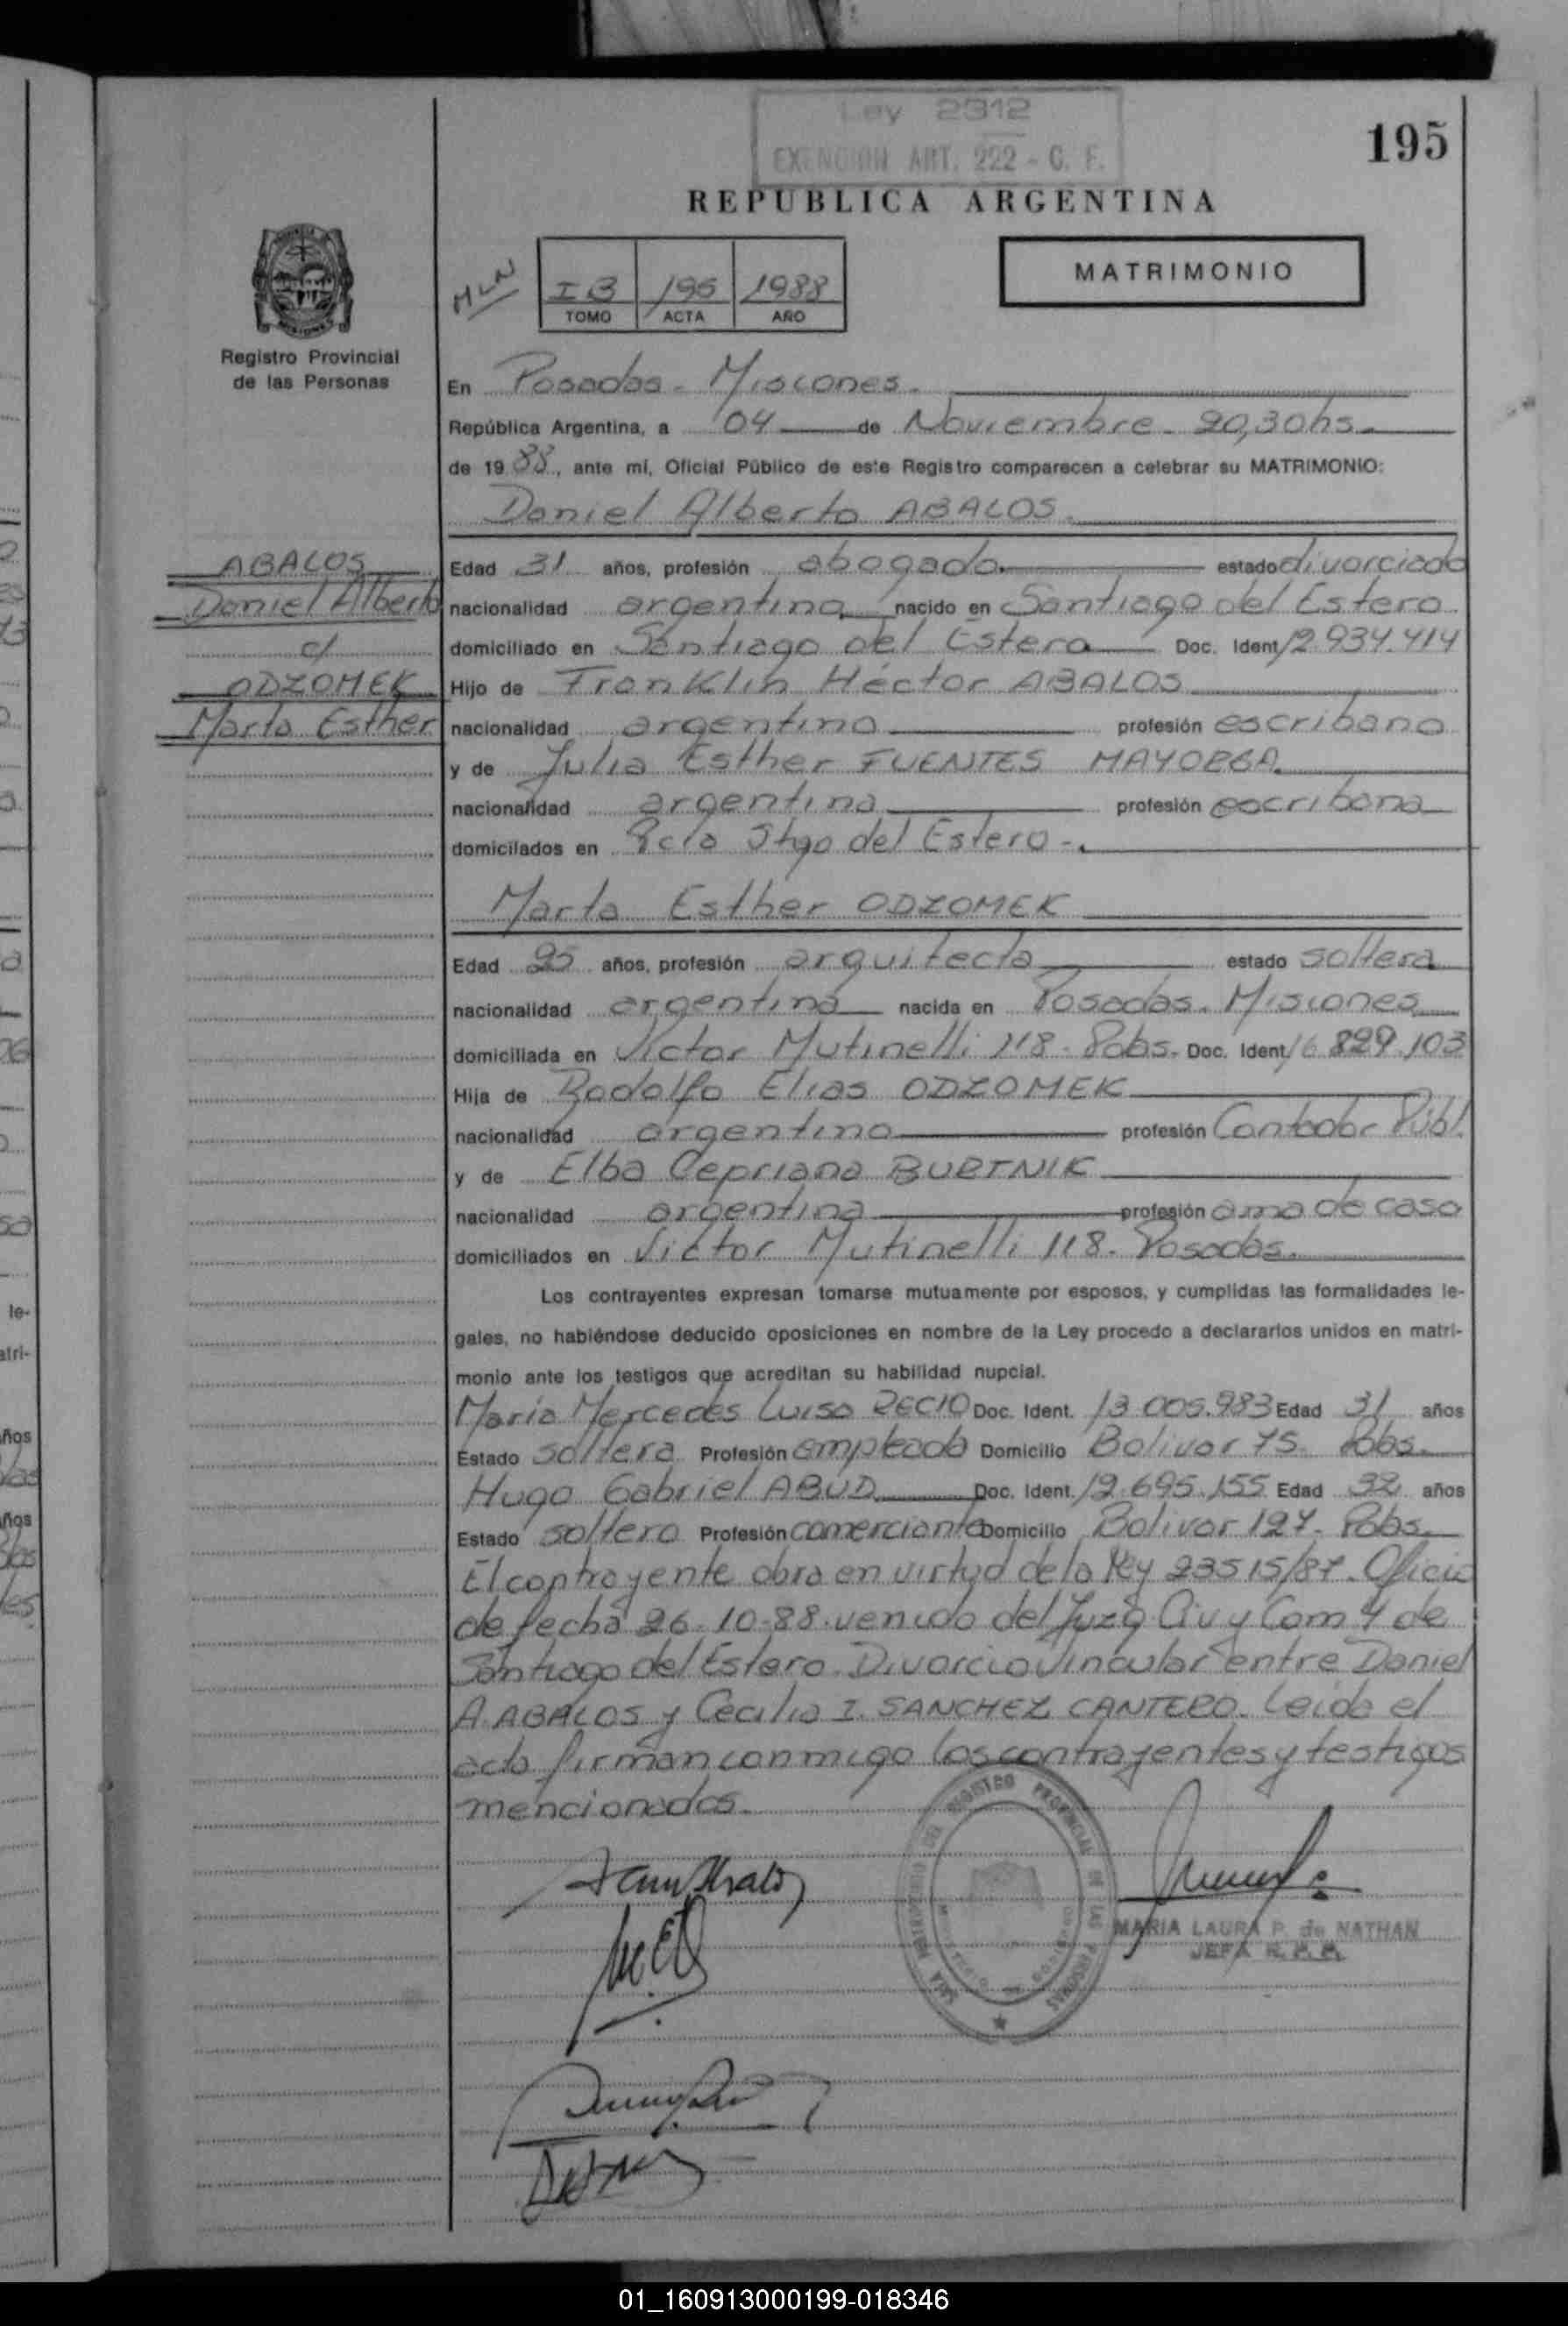 Ley 2312
EXENCION ART. 222 - C. F.
195
REPUBLICA ARGENTINA
MATRIMONIO
MLN
I B 195 1988
TOMO ACTA AÑO
Registro Provincial
de las Personas
En Posadas - Misiones.
República Argentina, a 04 de Noviembre - 20,30hs.
de 1988, ante mí, Oficial Público de este Registro comparecen a celebrar su MATRIMONIO:
Daniel Alberto ABALOS
ABALOS
Daniel Alberto
c/
ODZOMEK
Marta Esther
Edad 31 años, profesión abogado estado divorciado
nacionalidad argentina nacido en Santiago del Estero
domiciliado en Santiago del Estero Doc. Ident. 12.934.414
Hijo de Franklin Héctor ABALOS
nacionalidad argentino profesión escribano
y de Julia Esther FUENTES MAYORGA
nacionalidad argentina profesión escribana
domicilados en Pcia Stgo del Estero -.
Marta Esther ODZOMEK
Edad 25 años, profesión arquitecta estado soltera
nacionalidad argentina nacida en Posadas. Misiones
domiciliada en Victor Mutinelli 118 - Pdas. Doc. Ident. 16 829.103
Hija de Rodolfo Elias ODZOMEK
nacionalidad argentino profesión Contador Públ.
y de Elba Cepriana BURTNIK
nacionalidad argentina profesión ama de casa
domiciliados en Victor Mutinelli 118. Posadas.
Los contrayentes expresan tomarse mutuamente por esposos, y cumplidas las formalidades le-
gales, no habiéndose deducido oposiciones en nombre de la Ley procedo a declararlos unidos en matri-
monio ante los testigos que acreditan su habilidad nupcial.
María Mercedes Luisa DECIO Doc. Ident. 13 005.983 Edad 31 años
Estado soltera Profesión empleada Domicilio Bolivar 75. Pdas.
Hugo Gabriel ABUD Doc. Ident. 12.695.155 Edad 32 años
Estado soltero Profesión comerciante Domicilio Bolivar 127. Pdas.
El contrayente obra en virtud de la Ley 23515/87. Oficio
de fecha 26-10-88 venido del Juzg. Civ y Com 4 de
Santiago del Estero. Divorcio Vincular entre Daniel
A. ABALOS y Cecilia I. SANCHEZ CANTERO. Leída el
acta firman conmigo los contrayentes y testigos
mencionados.
REGISTRO PROVINCIAL DE LAS PERSONAS
MARIA LAURA P. de NATHAN
JEFA R. P. P.
01_160913000199-018346